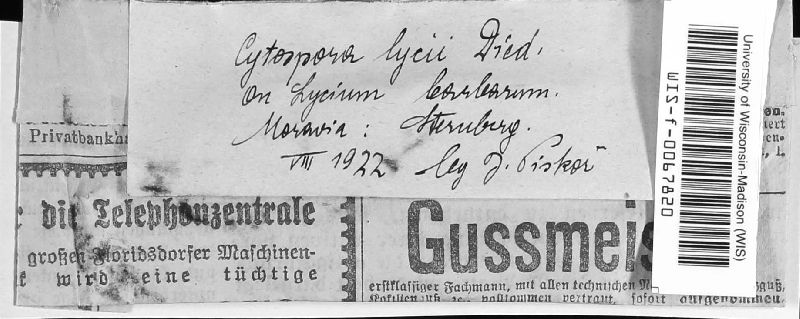 Cytospora lycii Died.
on Lycium barbarum.
Moravia: Sternberg.
VIII 1922 leg J. Piskoř
University of Wisconsin-Madison (WIS)
WIS-f-0067820
Privatbankh
die Telephonzentrale
großen Floridsdorfer Maschinen-
wird eine tüchtige
Gussmeis
erstklassiger Fachmann, mit allen technischen
vollkommen vertraut, sofort aufgenommen.